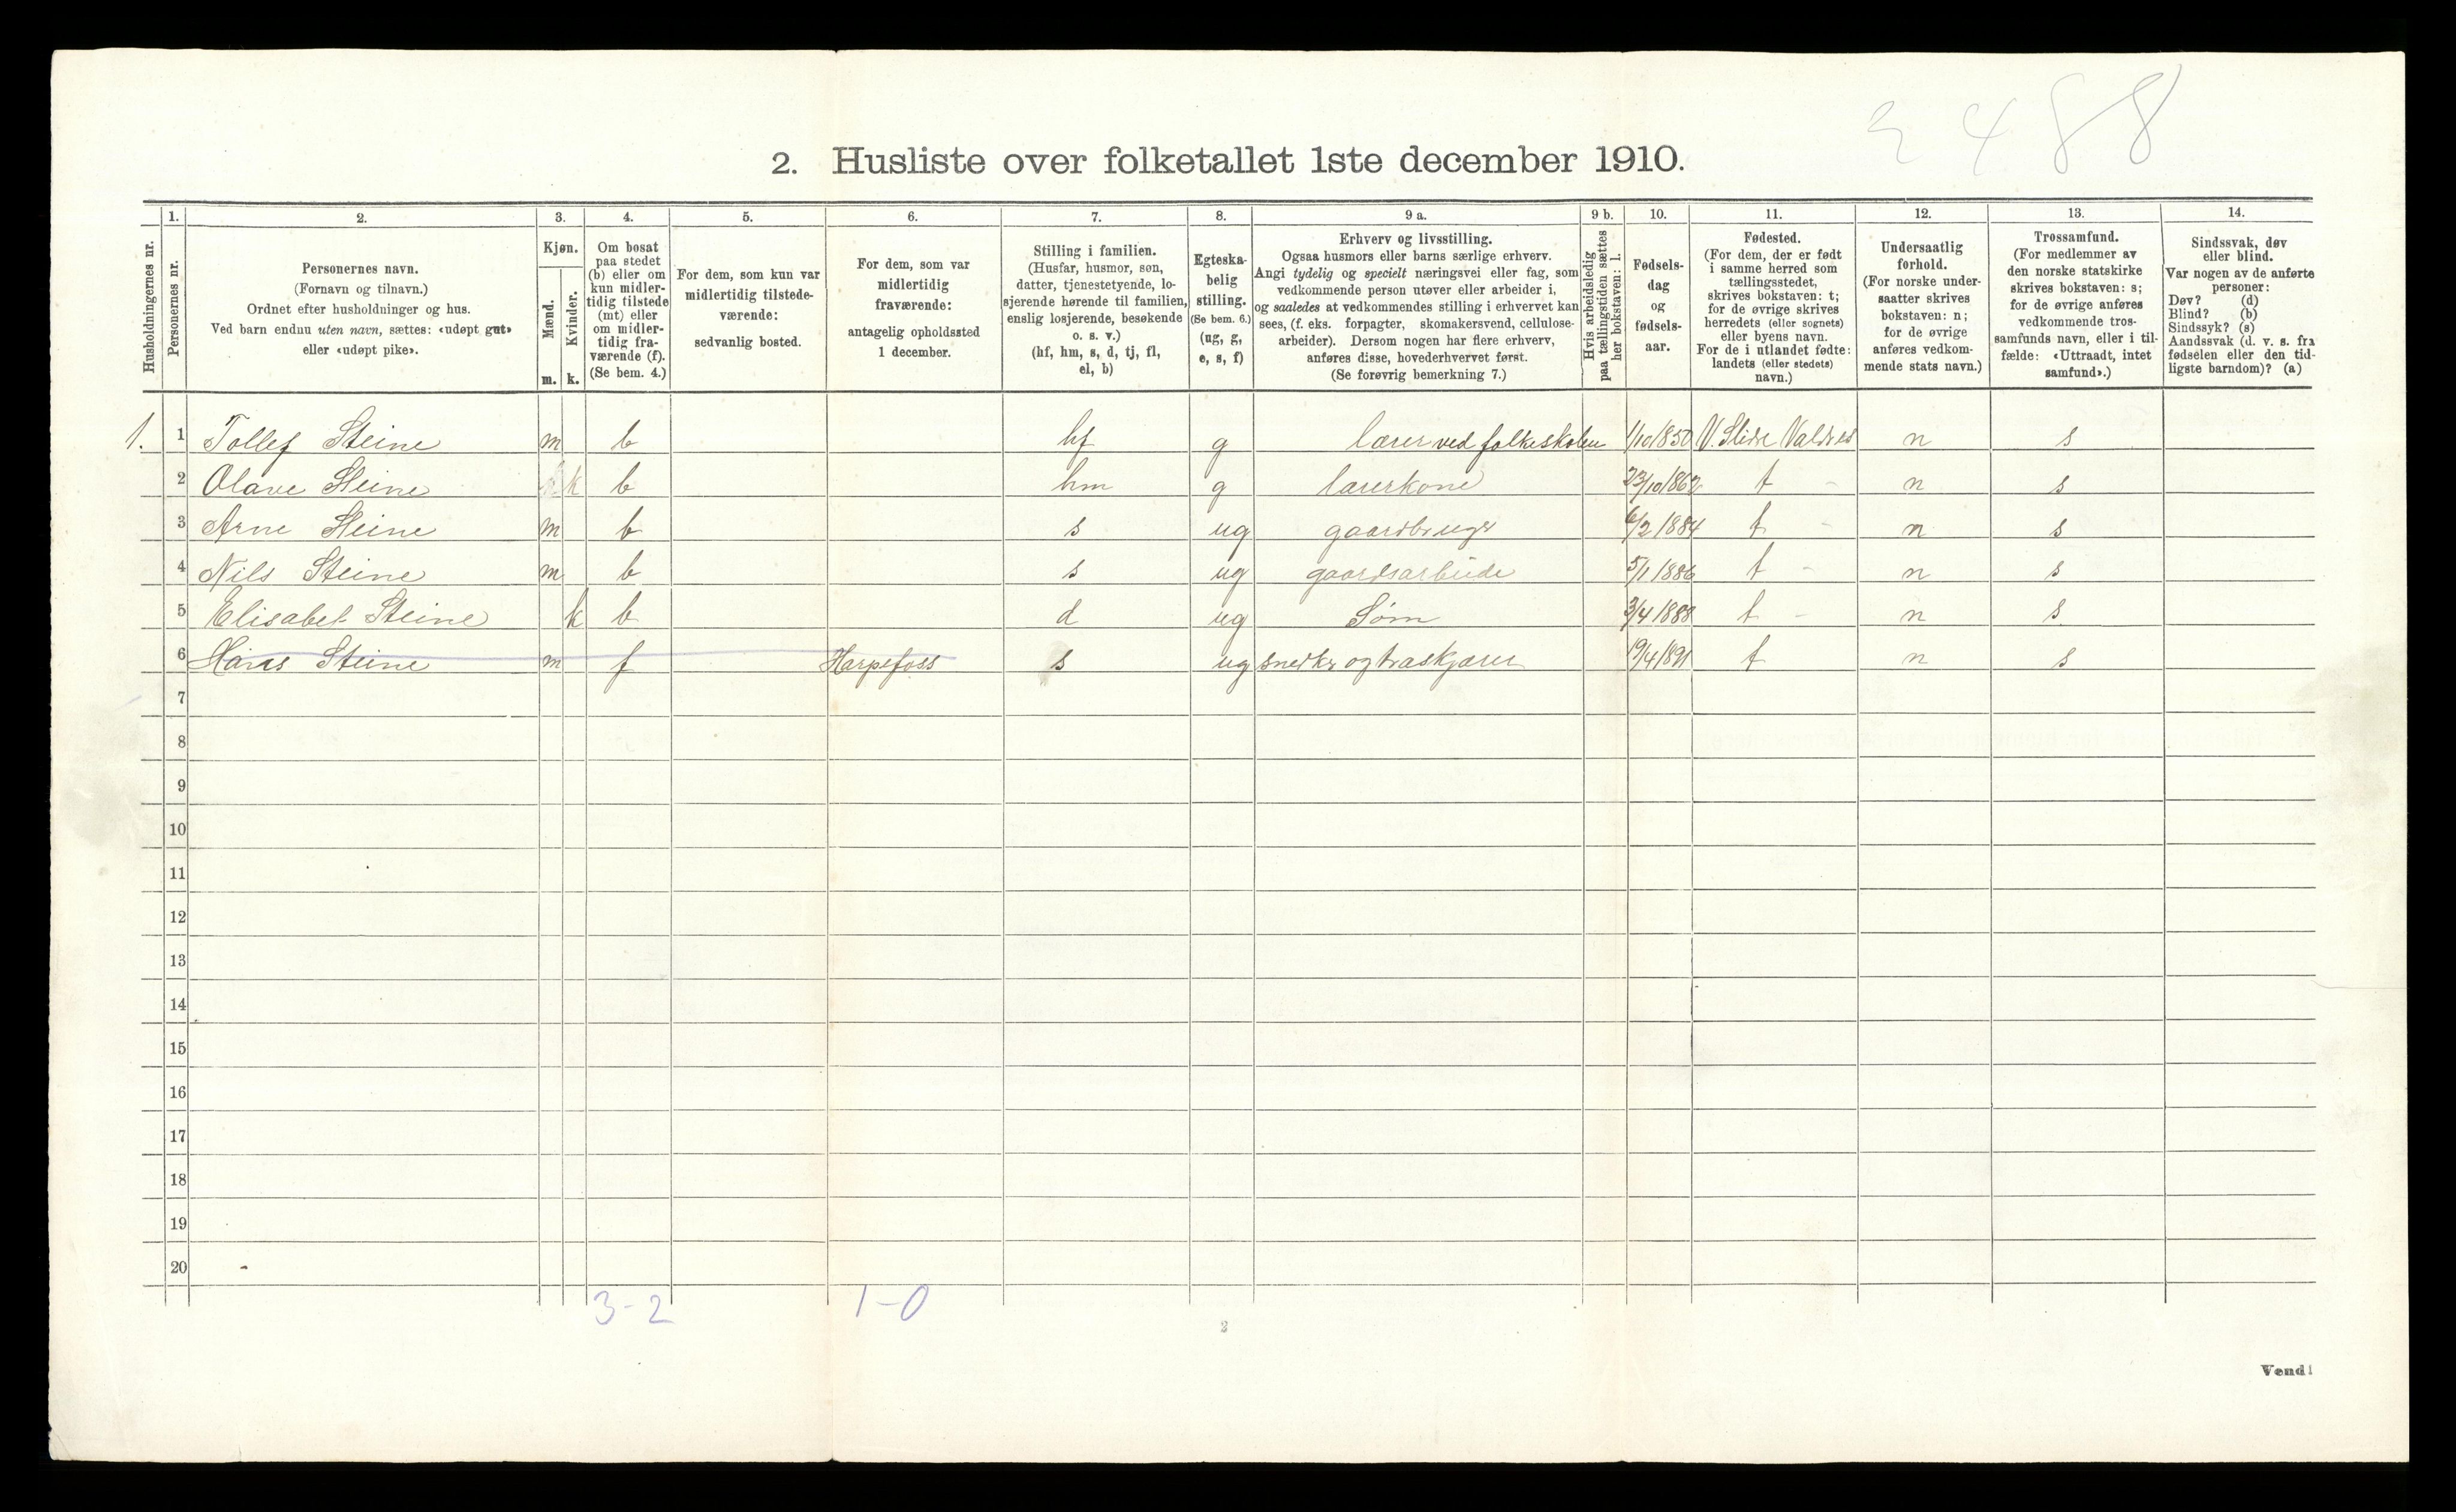 2488
2. Husliste over folketallet 1ste december 1910.
1. 2. 3. 4. 5. 6. 7. 8. 9 a. 9 b. 10. 11. 12. 13. 14.
Husholdningernes nr.
Personernes nr.
Personernes navn.
(Fornavn og tilnavn.)
Ordnet efter husholdninger og hus.
Ved barn endnu uten navn, sættes: «udøpt gut»
eller «udøpt pike».
Kjøn.
Mænd.
Kvinder.
m. k.
Om bosat
paa stedet
(b) eller om
kun midler-
tidig tilstede
(mt) eller
om midler-
tidig fra-
værende (f).
(Se bem. 4.)
For dem, som kun var
midlertidig tilstede-
værende:
sedvanlig bosted.
For dem, som var
midlertidig
fraværende:
antagelig opholdssted
1 december.
Stilling i familien.
(Husfar, husmor, søn,
datter, tjenestetyende, lo-
sjerende hørende til familien,
enslig losjerende, besøkende
o. s. v.)
(hf, hm, s, d, tj, fl,
el, b)
Egteska-
belig
stilling.
(Se bem. 6.)
(ug, g,
e, s, f)
Erhverv og livsstilling.
Ogsaa husmors eller barns særlige erhverv.
Angi tydelig og specielt næringsvei eller fag, som
vedkommende person utøver eller arbeider i,
og saaledes at vedkommendes stilling i erhvervet kan
sees, (f. eks. forpagter, skomakersvend, cellulose-
arbeider). Dersom nogen har flere erhverv,
anføres disse, hovederhvervet først.
(Se forøvrig bemerkning 7.)
Hvis arbeidsledig
paa tællingstiden sættes
her bokstaven: l.
Fødsels-
dag
og
fødsels-
aar.
Fødested.
(For dem, der er født
i samme herred som
tællingsstedet,
skrives bokstaven: t;
for de øvrige skrives
herredets (eller sognets)
eller byens navn.
For de i utlandet fødte:
landets (eller stedets)
navn.)
Undersaatlig
forhold.
(For norske under-
saatter skrives
bokstaven: n;
for de øvrige
anføres vedkom-
mende stats navn.)
Trossamfund.
(For medlemmer av
den norske statskirke
skrives bokstaven: s;
for de øvrige anføres
vedkommende tros-
samfunds navn, eller i til-
fælde: «Uttraadt, intet
samfund».)
Sindssvak, døv
eller blind.
Var nogen av de anførte
personer:
Døv? (d)
Blind? (b)
Sindssyk? (s)
Aandssvak (d. v. s. fra
fødselen eller den tid-
ligste barndom)? (a)
1. 1 Tollef Steine m b hf g lærer ved folkeskolen 1/10 1850 V. Slidre Valdres n s
2 Olave Steine k b hm g lærerkone 23/10 1862 t - n s
3 Arne Steine m b s ug gaardbruger 6/2 1884 t - n s
4 Nils Steine m b s ug gaardsarbeide 5/1 1886 t - n s
5 Elisabet Steine k b d ug Søm 3/4 1888 t - n s
6 Hans Steine m f Harpefoss s ug snedker og træskjærer 19/4 1891 t n s
7
8
9
10
11
12
13
14
15
16
17
18
19
20
3-2 1-0
2
Vend!